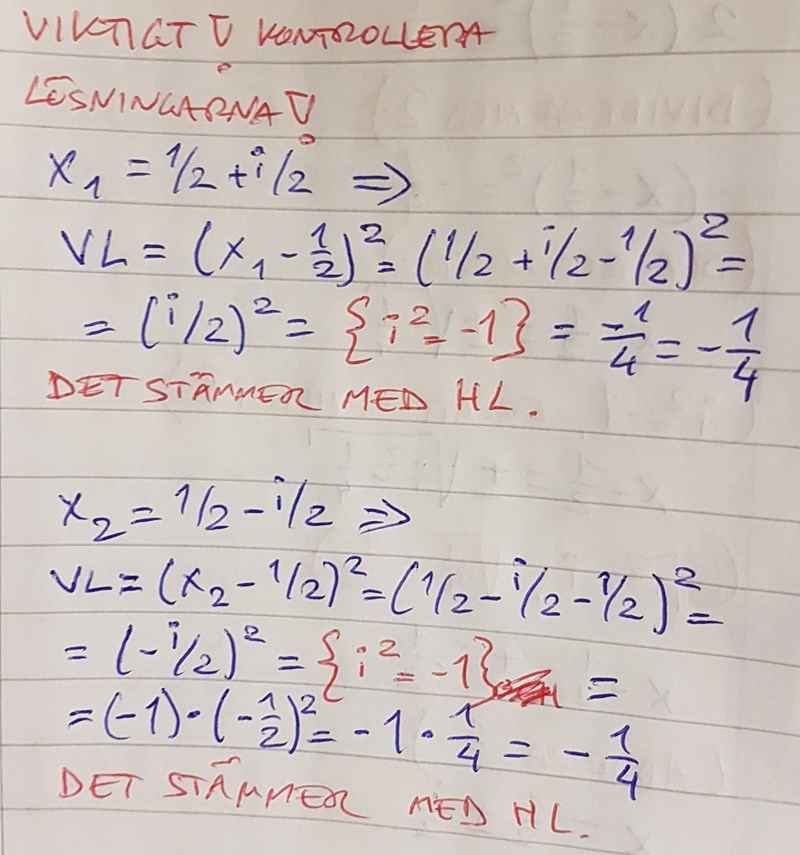 VIKTIGT! KONTROLLERA
LÖSNINGARNA!
x₁ = 1/2 + i/2 ⇒
VL = (x₁ - 1/2)² = (1/2 + i/2 - 1/2)² =
= (i/2)² = {i² = -1} = -1/4 = -1/4
DET STÄMMER MED HL.
x₂ = 1/2 - i/2 ⇒
VL = (x₂ - 1/2)² = (1/2 - i/2 - 1/2)² =
= (-i/2)² = {i² = -1} =
= (-1)·(-1/2)² = -1·1/4 = -1/4
DET STÄMMER MED HL.